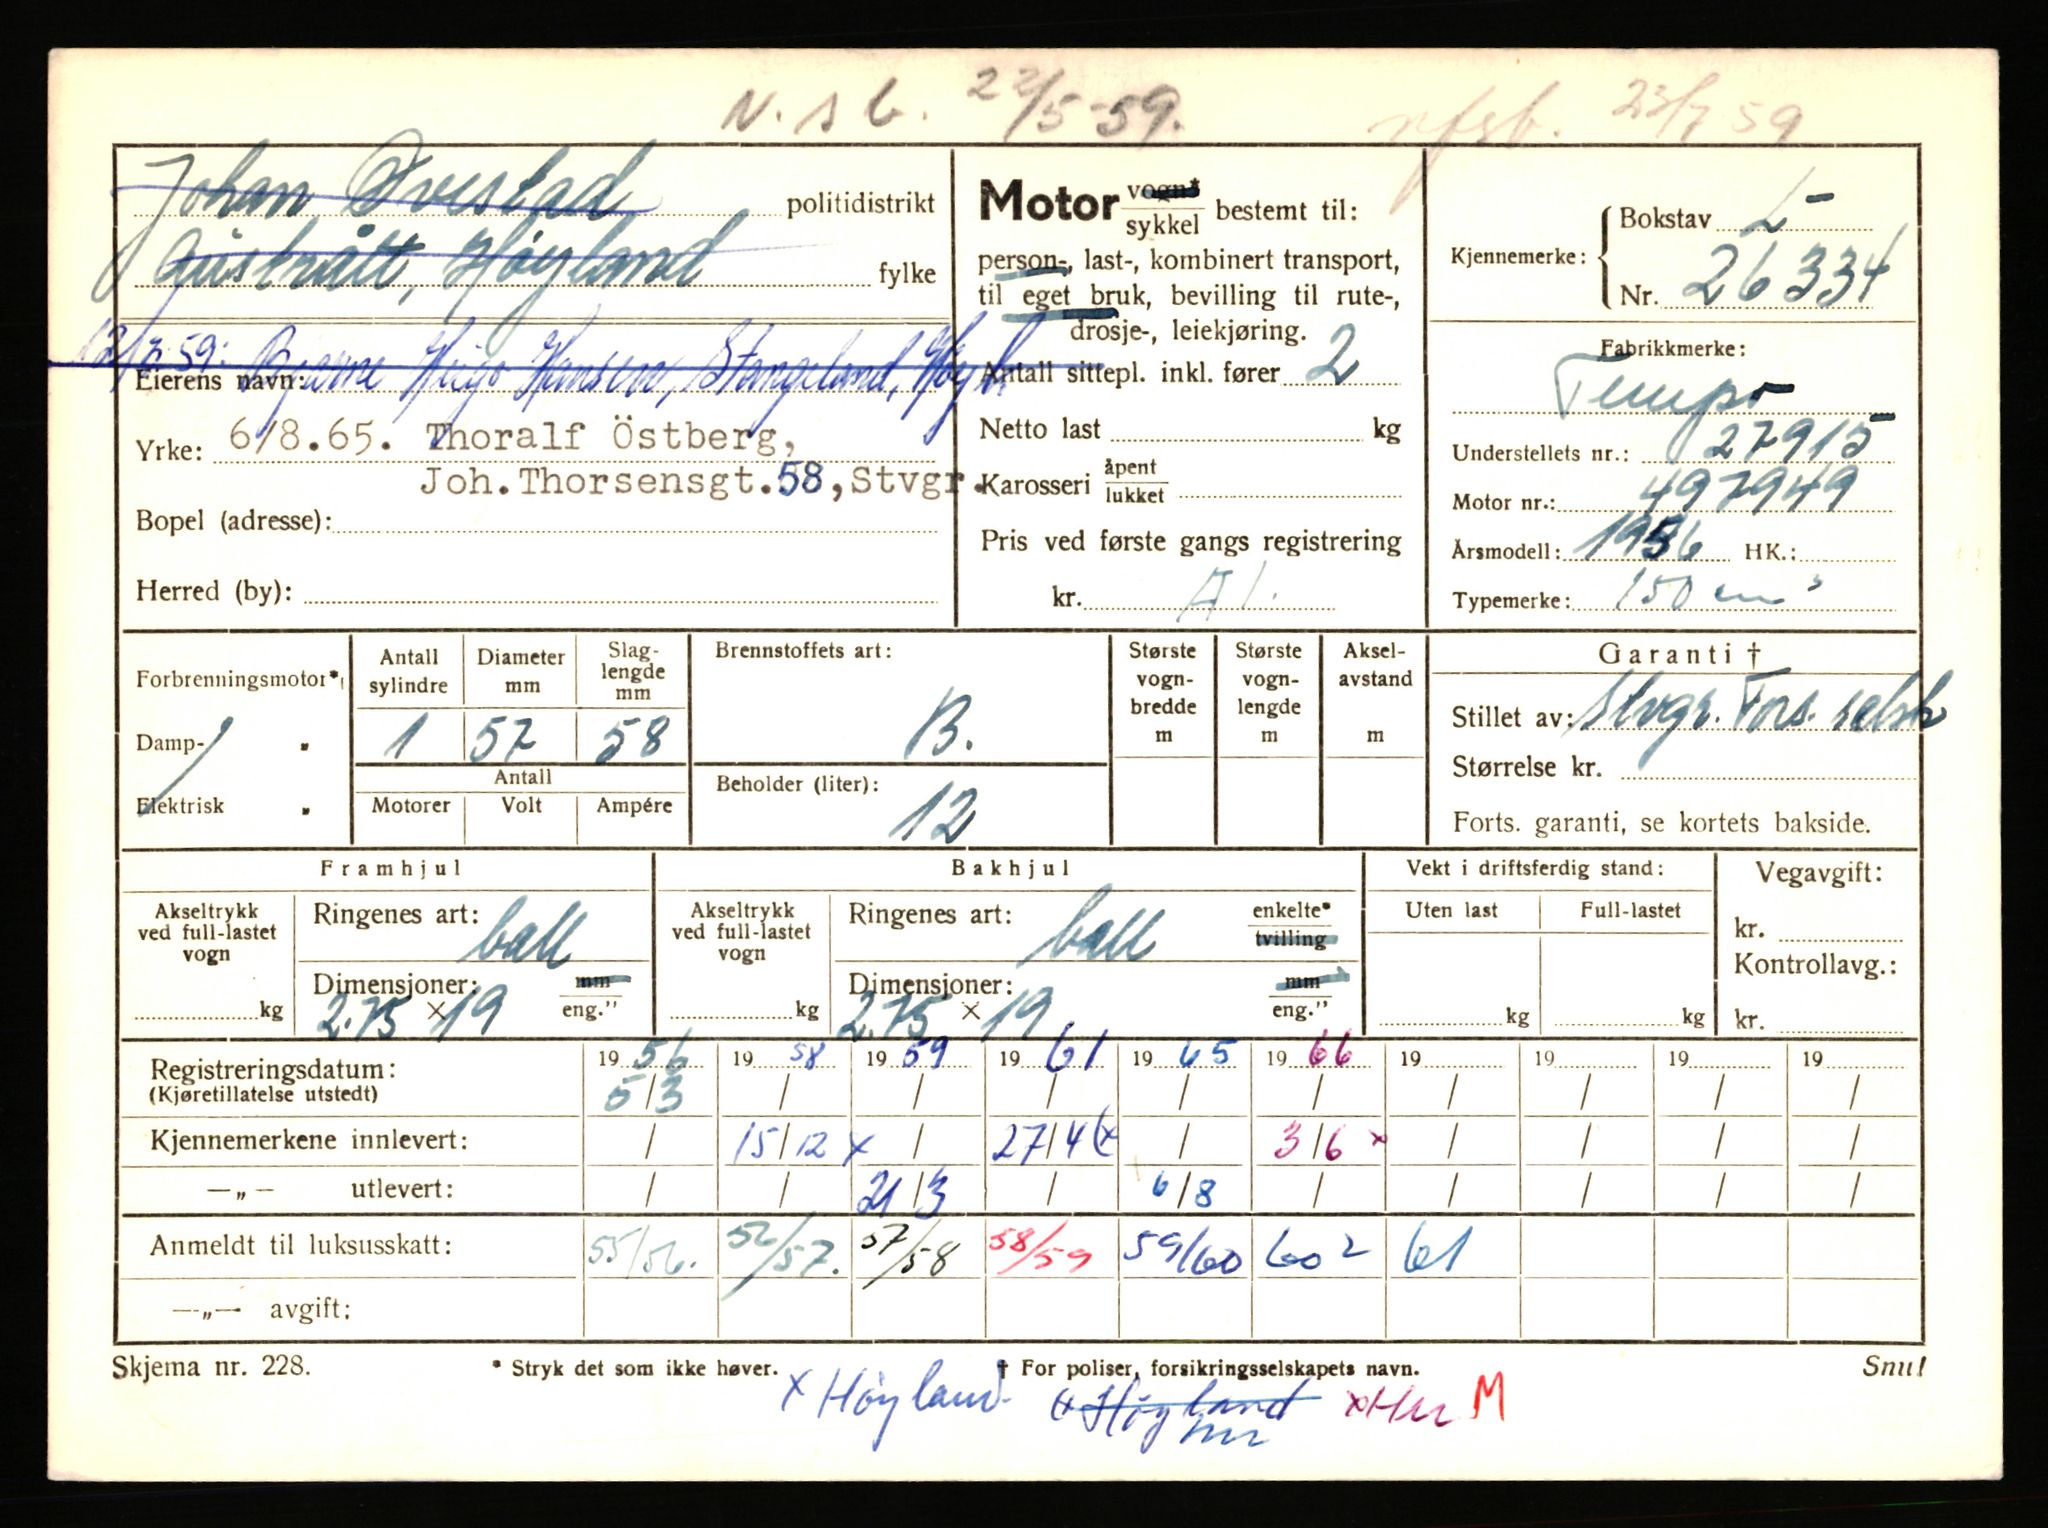 N. s b. 22/5-59.
23/7 59
Johan Øvestad politidistrikt
Austrått, Høyland fylke
12/7 59: Bjarne Hugo Hansen, Stangeland, Høyl.
Eierens navn:
Yrke: 6/8.65. Thoralf Östberg,
Joh.Thorsensgt.58, Stvgr.
Bopel (adresse):
Herred (by):
Motor vogn* sykkel bestemt til:
person-, last-, kombinert transport,
til eget bruk, bevilling til rute-,
drosje-, leiekjøring.
Antall sittepl. inkl. fører 2
Netto last kg
Karosseri åpent lukket
Pris ved første gangs registrering
kr. A l.
Kjennemerke: Bokstav L-
Nr. 26334
Fabrikkmerke:
Tempo
Understellets nr.: 27915
Motor nr.: 497949
Årsmodell: 1956 HK.:
Typemerke: 150 cm³
Forbrenningsmotor*)
Damp- "
Elektrisk "
Antall sylindre Diameter mm Slaglengde mm
1 57 58
Antall
Motorer Volt Ampére
Brennstoffets art:
B.
Beholder (liter):
12
Største vogn-bredde m Største vogn-lengde m Aksel-avstand m
Garanti †
Stillet av: Stvgr. Fors. selsk
Størrelse kr.
Forts. garanti, se kortets bakside.
Framhjul
Akseltrykk ved full-lastet vogn
kg
Ringenes art: ball
Dimensjoner: mm
2.75 × 19 eng."
Bakhjul
Akseltrykk ved full-lastet vogn
kg
Ringenes art: ball enkelte* tvilling
Dimensjoner: mm
2.75 × 19 eng."
Vekt i driftsferdig stand:
Uten last Full-lastet
kg kg
Vegavgift:
kr.
Kontrollavg.:
kr.
Registreringsdatum: 19 56 19 58 19 59 19 61 19 65 19 66 19 19 19 19
(Kjøretillatelse utstedt) 5/3 / / / / / / / / /
Kjennemerkene innlevert: / 15/12 x / 27/4 (x / 3/6 x / / / /
—„— utlevert: / / 21/3 / 6/8 / / / / /
Anmeldt til luksusskatt: 55/56. 56/57. 57/58 58/59 59/60 60² 61
—„— avgift:
Skjema nr. 228. * Stryk det som ikke høver. † For poliser, forsikringsselskapets navn. Snu!
x Høyland (x Høyland x Hm M